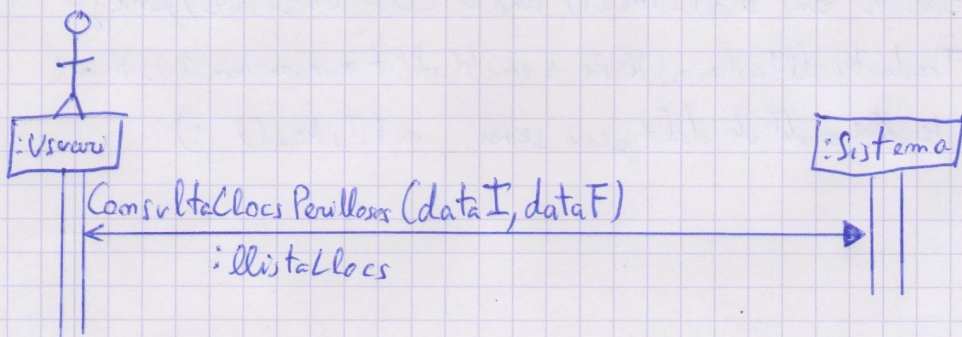 :Usuari
:Sistema
ConsultaLlocsPerillosos (dataI, dataF)
: llistaLlocs